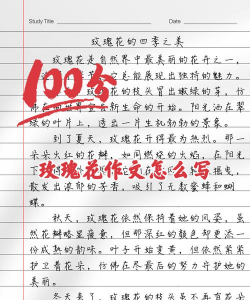 Study Title
Date
玫瑰花的四季之美
玫瑰花是自然界中最美丽的花卉之一,
总能展现出独特的魅力。
玫瑰花的枝头冒出嫩绿的芽,仿
生命的开始。阳光洒在翠
绿的叶片上,透出一片生机勃勃的景象。
到了夏天,玫瑰花开得最为热烈。那一
朵朵火红的花瓣,如同燃烧的火焰,在阳光
散发出浓郁的芳香,吸引了无数蜜蜂和蝴
蝶。
秋天,玫瑰花依然保持着她的风姿。虽
然花瓣略显疲惫,但那深红的颜色却更添一
份成熟的韵味。叶子开始变黄,但依然紧紧
护卫着花朵,仿佛在尽最后的努力守护她的
美丽。
100分
玫瑰花作文怎么写